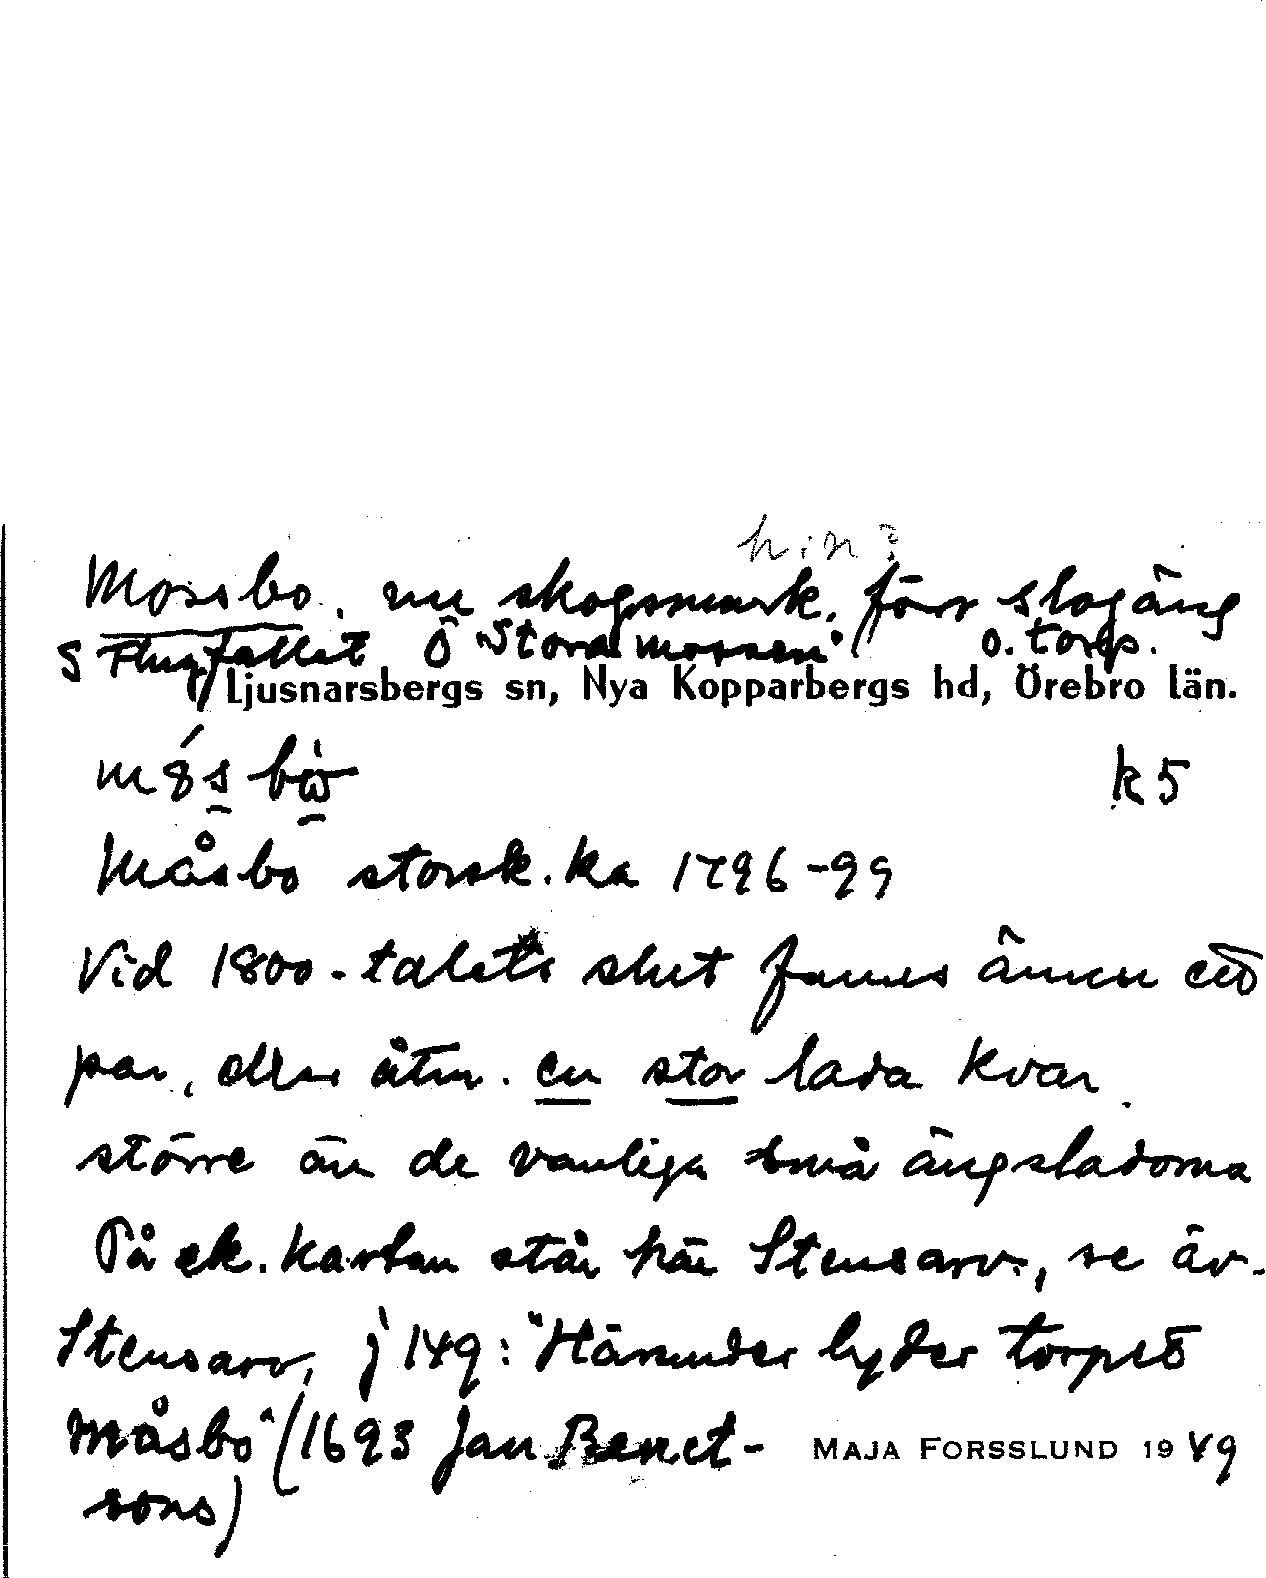 h:n?
Mossbo, nu skogsmark, förr slogäng
S Flugfallet Ö "Stora mossen" o. torp.
Ljusnarsbergs sn, Nya Kopparbergs hd, Örebro län.
k 5
Måsbo storsk. ka 1796-99
Vid 1800-talets slut funnos ännu ett
par, eller åtm. en stor lada kvar
större än de vanliga små ängsladorna
På ek. kartan står här Stensarv, se äv.
Stensarv, j 149: "Härunder lyder torpet
Måsbo" (1693 Jan Benct-
sons)
MAJA FORSSLUND 1949